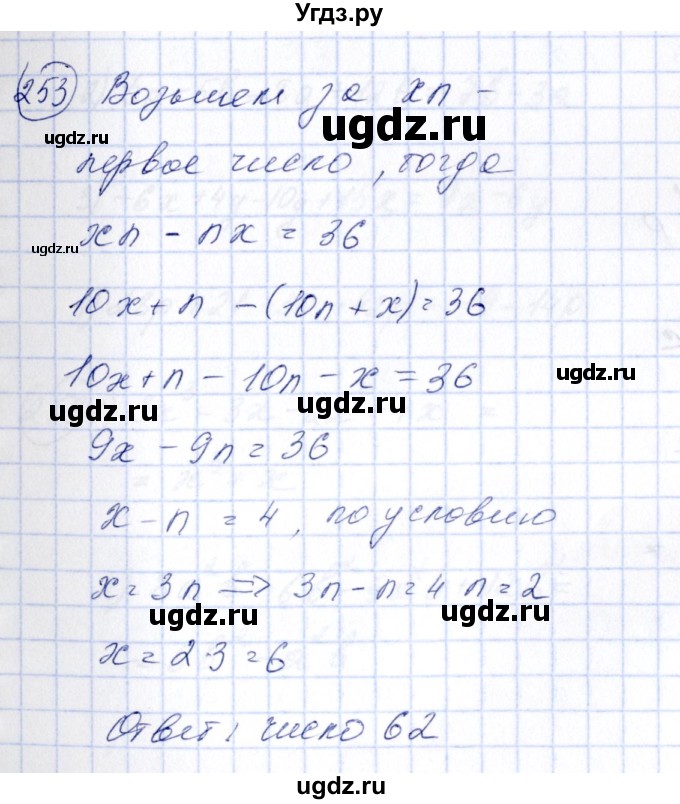 Угдз.ру
253 Возьмем за xn -
ugdz.ru ugdz.ru
первое число, тогда
ugdz.ru
xn - nx = 36
10x + n - (10n + x) = 36
10x + n - 10n - x = 36
ugdz.ru
ugdz.ru ugdz.ru
9x - 9n = 36
x - n = 4, по условию
x = 3n => 3n - n = 4 n = 2
ugdz.ru ugdz.ru
x = 2·3 = 6
Ответ: число 62
ugdz.ru